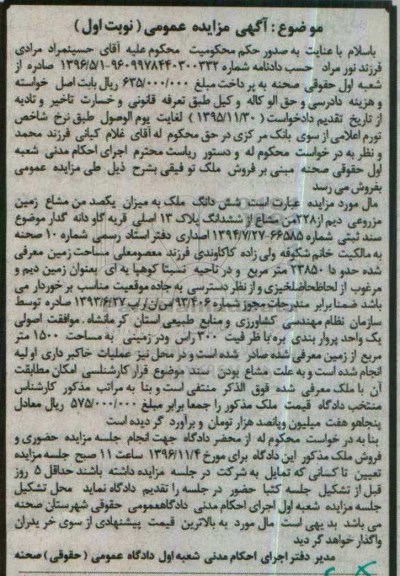 موضوع: آگهی مزایده عمومی (نوبت اول)
باسلام با عنایت به صدور حکم محکومیت محکوم علیه آقای حسینمراد مرادی
فرزند نور مراد حسب دادنامه شماره ۹۶۰۹۹۷۸۴۴۰۳۰۰۳۳۲-۱۳۹۶/۵/۱ صادره از
شعبه اول حقوقی صحنه به پرداخت مبلغ ۶۳۵/۰۰۰/۰۰۰ ریال بابت اصل خواسته
و هزینه دادرسی و حق الوکاله وکیل طبق تعرفه قانونی و خسارت تاخیر و تادیه
از تاریخ تقدیم دادخواست (۱۳۹۵/۱۱/۳۰) لغایت یوم الوصول طبق نرخ شاخص
تورم اعلامی از سوی بانک مرکزی در حق محکوم له آقای غلام کیانی فرزند محمد
و نظر به درخواست محکوم له و دستور ریاست محترم اجرای احکام مدنی شعبه
اول حقوقی صحنه مبنی بر فروش ملک توقیفی بشرح ذیل طی مزایده عمومی
بفروش می رسد
مال مورد مزایده عبارت است شش دانگ ملک به میزان یکصد من مشاع زمین
مزروعی دیم از ۲۲۸من مشاع از ششدانگ پلاک ۱۳ اصلی قریه گاودانه گدار موضوع
سند ثبتی شماره ۶۶۵۸۵-۱۳۹۴/۷/۲۷ اصداری دفتر اسناد رسمی شماره ۱۰ صحنه
به مالکیت خانم شکوفه ولی زاده کاکاوندی فرزند معصومعلی مساحت زمین معرفی
شده حدودا ۲۳۸۵۰ متر مربع و در ناحیه نسبتا کوهپایه ای بعنوان زمین دیم و
مرغوب از لحاظ حاصلخیزی و از نظر دسترسی به جاده موقعیت مناسب برخوردار می
باشد ضمنا برابر مندرجات مجوز شماره ۹۳/۴۰۶ ۱۳۹۳/۶/۲۷ صادره توسط
سازمان نظام مهندسی کشاورزی و منابع طبیعی استان کرمانشاه، موافقت اصولی
یک واحد پروار بندی بره با ظرفیت ۳۰۰ راس ودر زمینی به مساحت ۱۵۰۰ متر
مربع از زمین معرفی شده صادر شده است و در محل نیز عملیات خاکبرداری اولیه
انجام شده است و به علت مشاع بودن سند موضوع قرار کارشناسی امکان مطابقت
آن با ملک معرفی شده فوق الذکر منتفی است و بنا به مراتب مذکور کارشناس
منتخب دادگاه قیمت ملک مذکور را جمعا برابر مبلغ ۵۷۵/۰۰۰/۰۰۰ ریال معادل
پنجاهو هفت میلیون وپانصد هزار تومان و برآورد گردیده است
بنا به درخواست محکوم له از محضر دادگاه جهت انجام جلسه مزایده حضوری و
فروش ملک مذکور این دادگاه برای مورخ ۱۳۹۶/۱۱/۴ ساعت ۱۱ صبح جلسه مزایده
تعیین تا کسانی که تمایل به شرکت در جلسه مزایده داشته باشند حداقل ۵ روز
قبل از تشکیل جلسه کتبا حضور در جلسه را تقدیم دادگاه نماید محل تشکیل
جلسه مزایده شعبه اول اجرای احکام مدنی دادگاه عمومی حقوقی شهرستان صحنه
می باشد بدیهی است مال مورد به بالاترین قیمت پیشنهادی از سوی خریدران
واگذار خواهد گردید
مدیر دفتر اجرای احکام مدنی شعبه اول دادگاه عمومی (حقوقی) صحنه